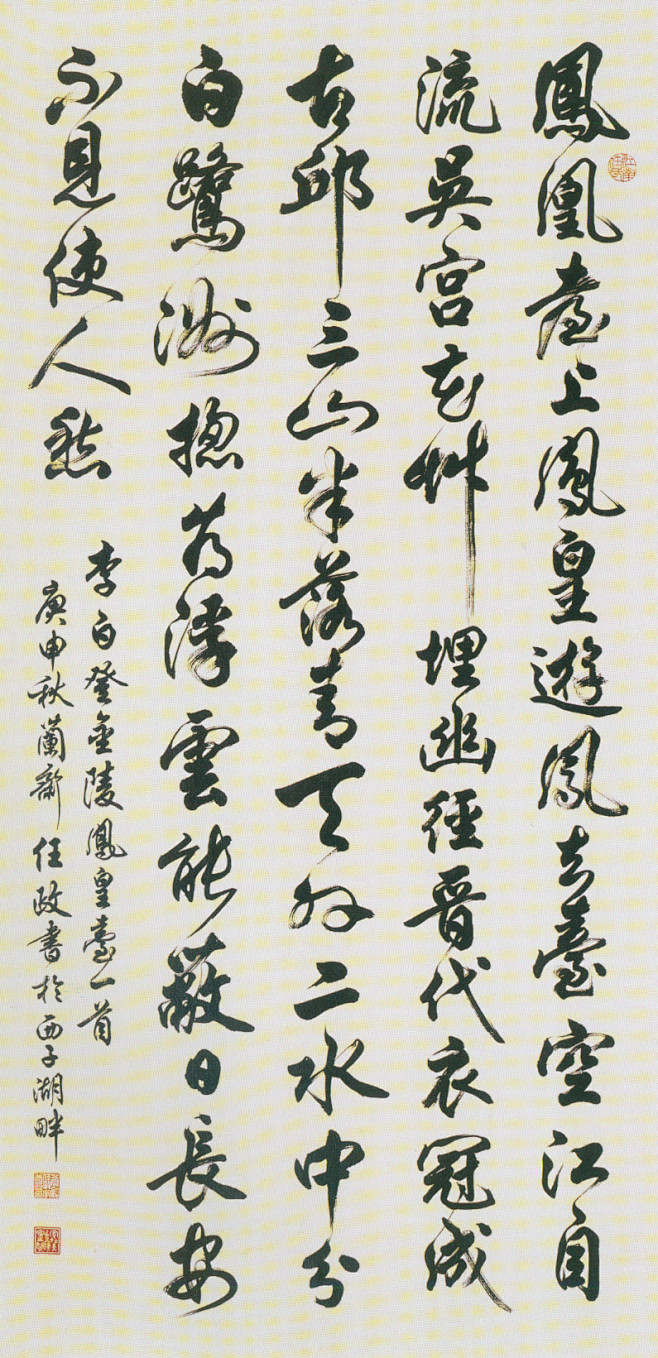 鳳凰臺上鳳皇遊鳳去臺空江自
流吳宮花艸埋幽徑晉代衣冠成
古邱三山半落青天外二水中分
白鷺洲揔為浮雲能蔽日長安
不見使人愁
李白登金陵鳳皇臺一首
庚申秋蘭齋任政書於西子湖畔